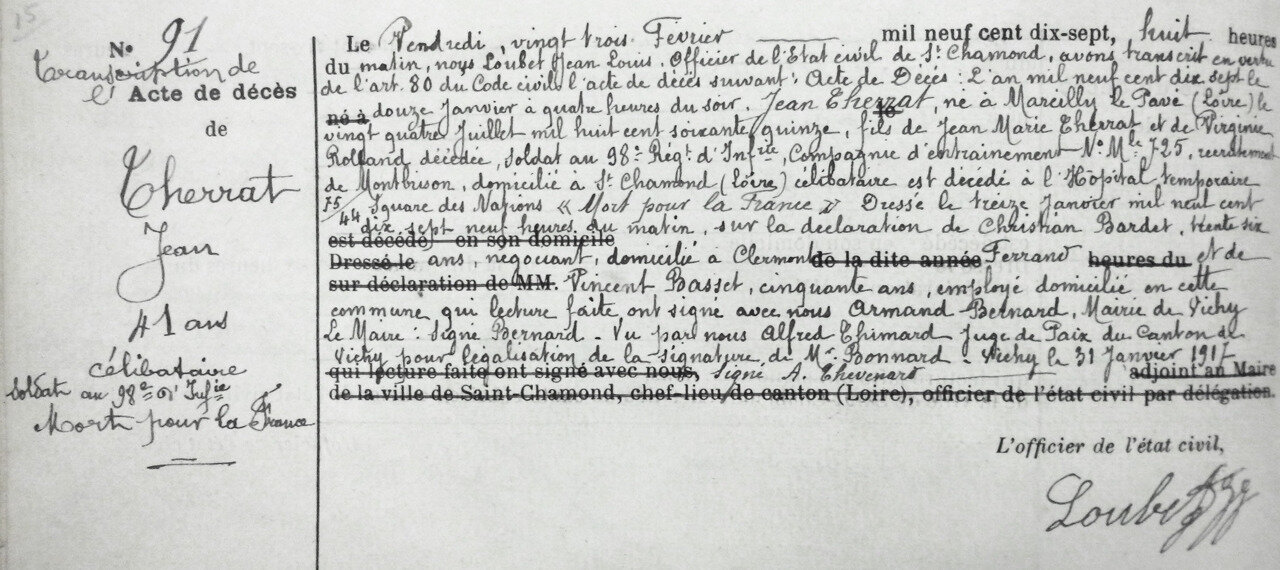 15
N° 91
transcription de
l' Acte de décès
de
Therrat
Jean
41 ans
célibataire
Soldat au 98e d'Infie
Mort pour la France
Le Vendredi, vingt trois Février mil neuf cent dix-sept, huit heures
du matin, nous Loubet Jean Louis, Officier de l'Etat civil de St Chamond, avons transcrit en vertu
de l'art. 80 du Code civil l'acte de décès suivant: Acte de Décès: L'an mil neuf cent dix sept le
né à douze Janvier à quatre heures du soir, Jean Therrat, le né à Marcilly le Pavé (Loire) le
vingt quatre Juillet mil huit cent soixante quinze, fils de Jean Marie Therrat et de Virginie
Rolland décédée, soldat au 98e Régt d'Infrie, Compagnie d'entrainement No Mle 725, recrutement
de Montbrison, domicilié à St Chamond (Loire) célibataire est décédé à l'Hôpital temporaire
75/44 Square des Nations « Mort pour la France » Dressé le treize Janvier mil neuf cent
dix sept neuf heures du matin, sur la déclaration de Christian Bardet, trente six
est décédé en son domicile
Dressé le ans, négociant, domicilié à Clermont de la dite année Ferrand heures du et de
sur déclaration de MM. Vincent Basset, cinquante ans, employé domicilié en cette
commune qui lecture faite ont signé avec nous Armand Bernard, Mairie de Vichy
Le Maire: Signé Bernard - Vu par nous Alfred Thimard Juge de Paix du Canton de
Vichy pour légalisation de la signature de Mr Bonnard - Vichy le 31 Janvier 1917
qui lecture faite ont signé avec nous, Signé A. Thevenard adjoint au Maire
de la ville de Saint-Chamond, chef-lieu de canton (Loire), officier de l'état civil par délégation.
L'officier de l'état civil,
Loubet